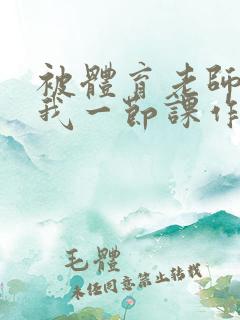 被體育老師
我一節課作
毛體
未經同意禁止轉載